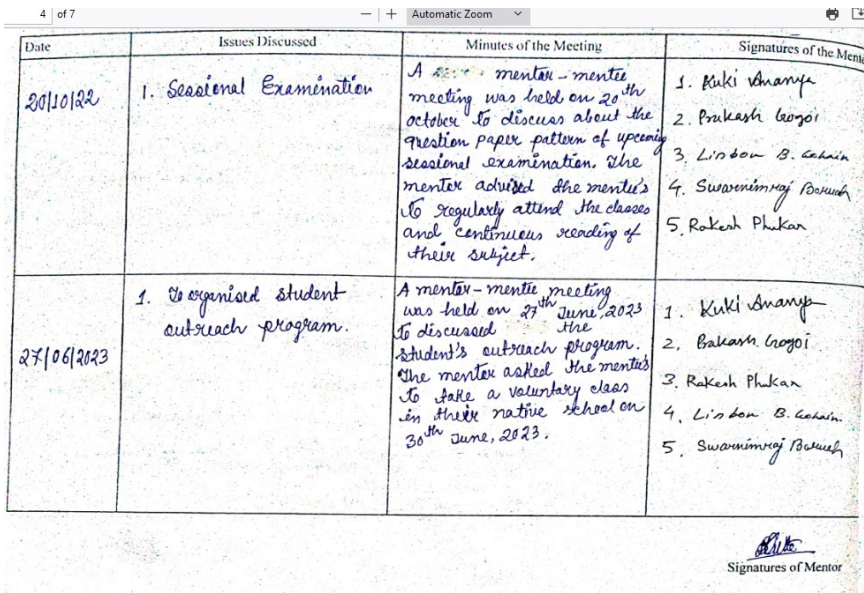 4 of 7
Automatic Zoom
Date
Issues Discussed
Minutes of the Meeting
Signatures of the
20/10/22
1. Sessional Examination
A mentor-mentee
meeting was held on 20th
october to discuss about the
question paper pattern of upcoming
sessional examination. The
mentor advised the mentee's
to regularly attend the classes
and continuous reading of
their subject.
1. Kuki Ananya
2. Prakash Gogoi
3. Linbon B. Gohain
4. Swarnimraj Boruah
5. Rakesh Phukan
27/06/2023
1. To organised student
outreach program.
A mentor-mentee meeting
was held on 27th June, 2023
to discussed the
student's outreach program.
The mentor asked the mentee's
to take a voluntary class
in their native school on
30th June, 2023.
1. Kuki Ananya
2. Prakash Gogoi
3. Rakesh Phukan
4. Linbon B. Gohain.
5. Swarnimraj Boruah
Signatures of Mentor